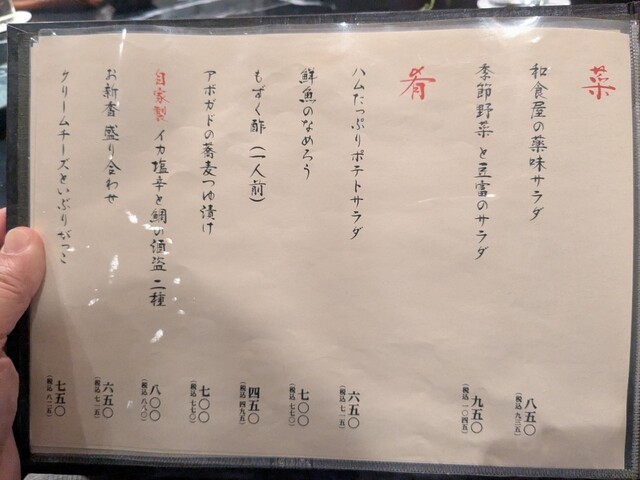 菜
和食屋の薬味サラダ 八五〇
(税込 九三五)
季節野菜と豆富のサラダ 九五〇
(税込 一〇四五)
肴
ハムたっぷりポテトサラダ 六五〇
(税込 七一五)
鮮魚のなめろう 七〇〇
(税込 七七〇)
もずく酢(一人前) 四五〇
(税込 四九五)
アボガドの蕎麦つゆ漬け 七〇〇
(税込 七七〇)
自家製 イカ塩辛と鯛の酒盗 二種 八〇〇
(税込 八八〇)
お新香盛り合わせ 六五〇
(税込 七一五)
クリームチーズといぶりがっこ 七五〇
(税込 八二五)